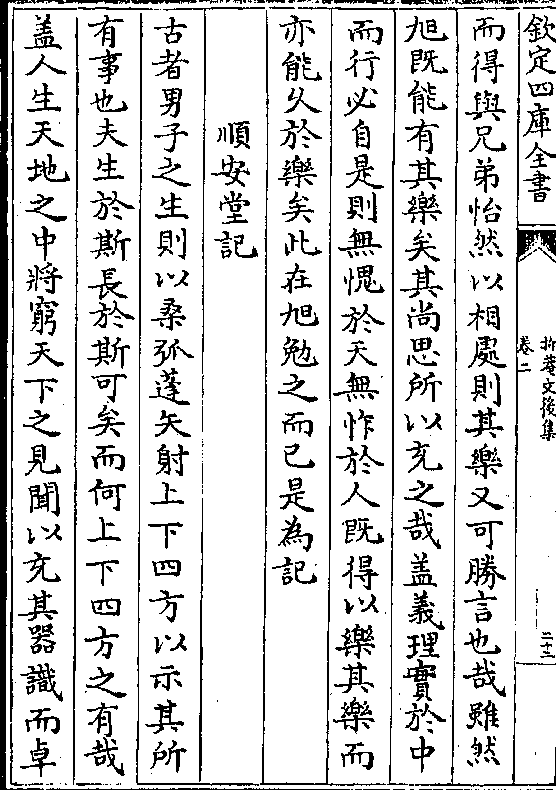 欽定四庫全書
卷二
二十三
而得與兄弟怡然以相處則其樂又可勝言也哉雖然
旭既能有其樂矣其尚思所以充之哉盖義理實於中
而行必自是則無愧於天無怍於人既得以樂其樂而
亦能久於樂矣此在旭勉之而已是為記
順安堂記
古者男子之生則以桑弧蓬矢射上下四方以示其所
有事也夫生於斯長於斯可矣而何上下四方之有哉
盖人生天地之中將窮天下之見聞以充其器識而卓